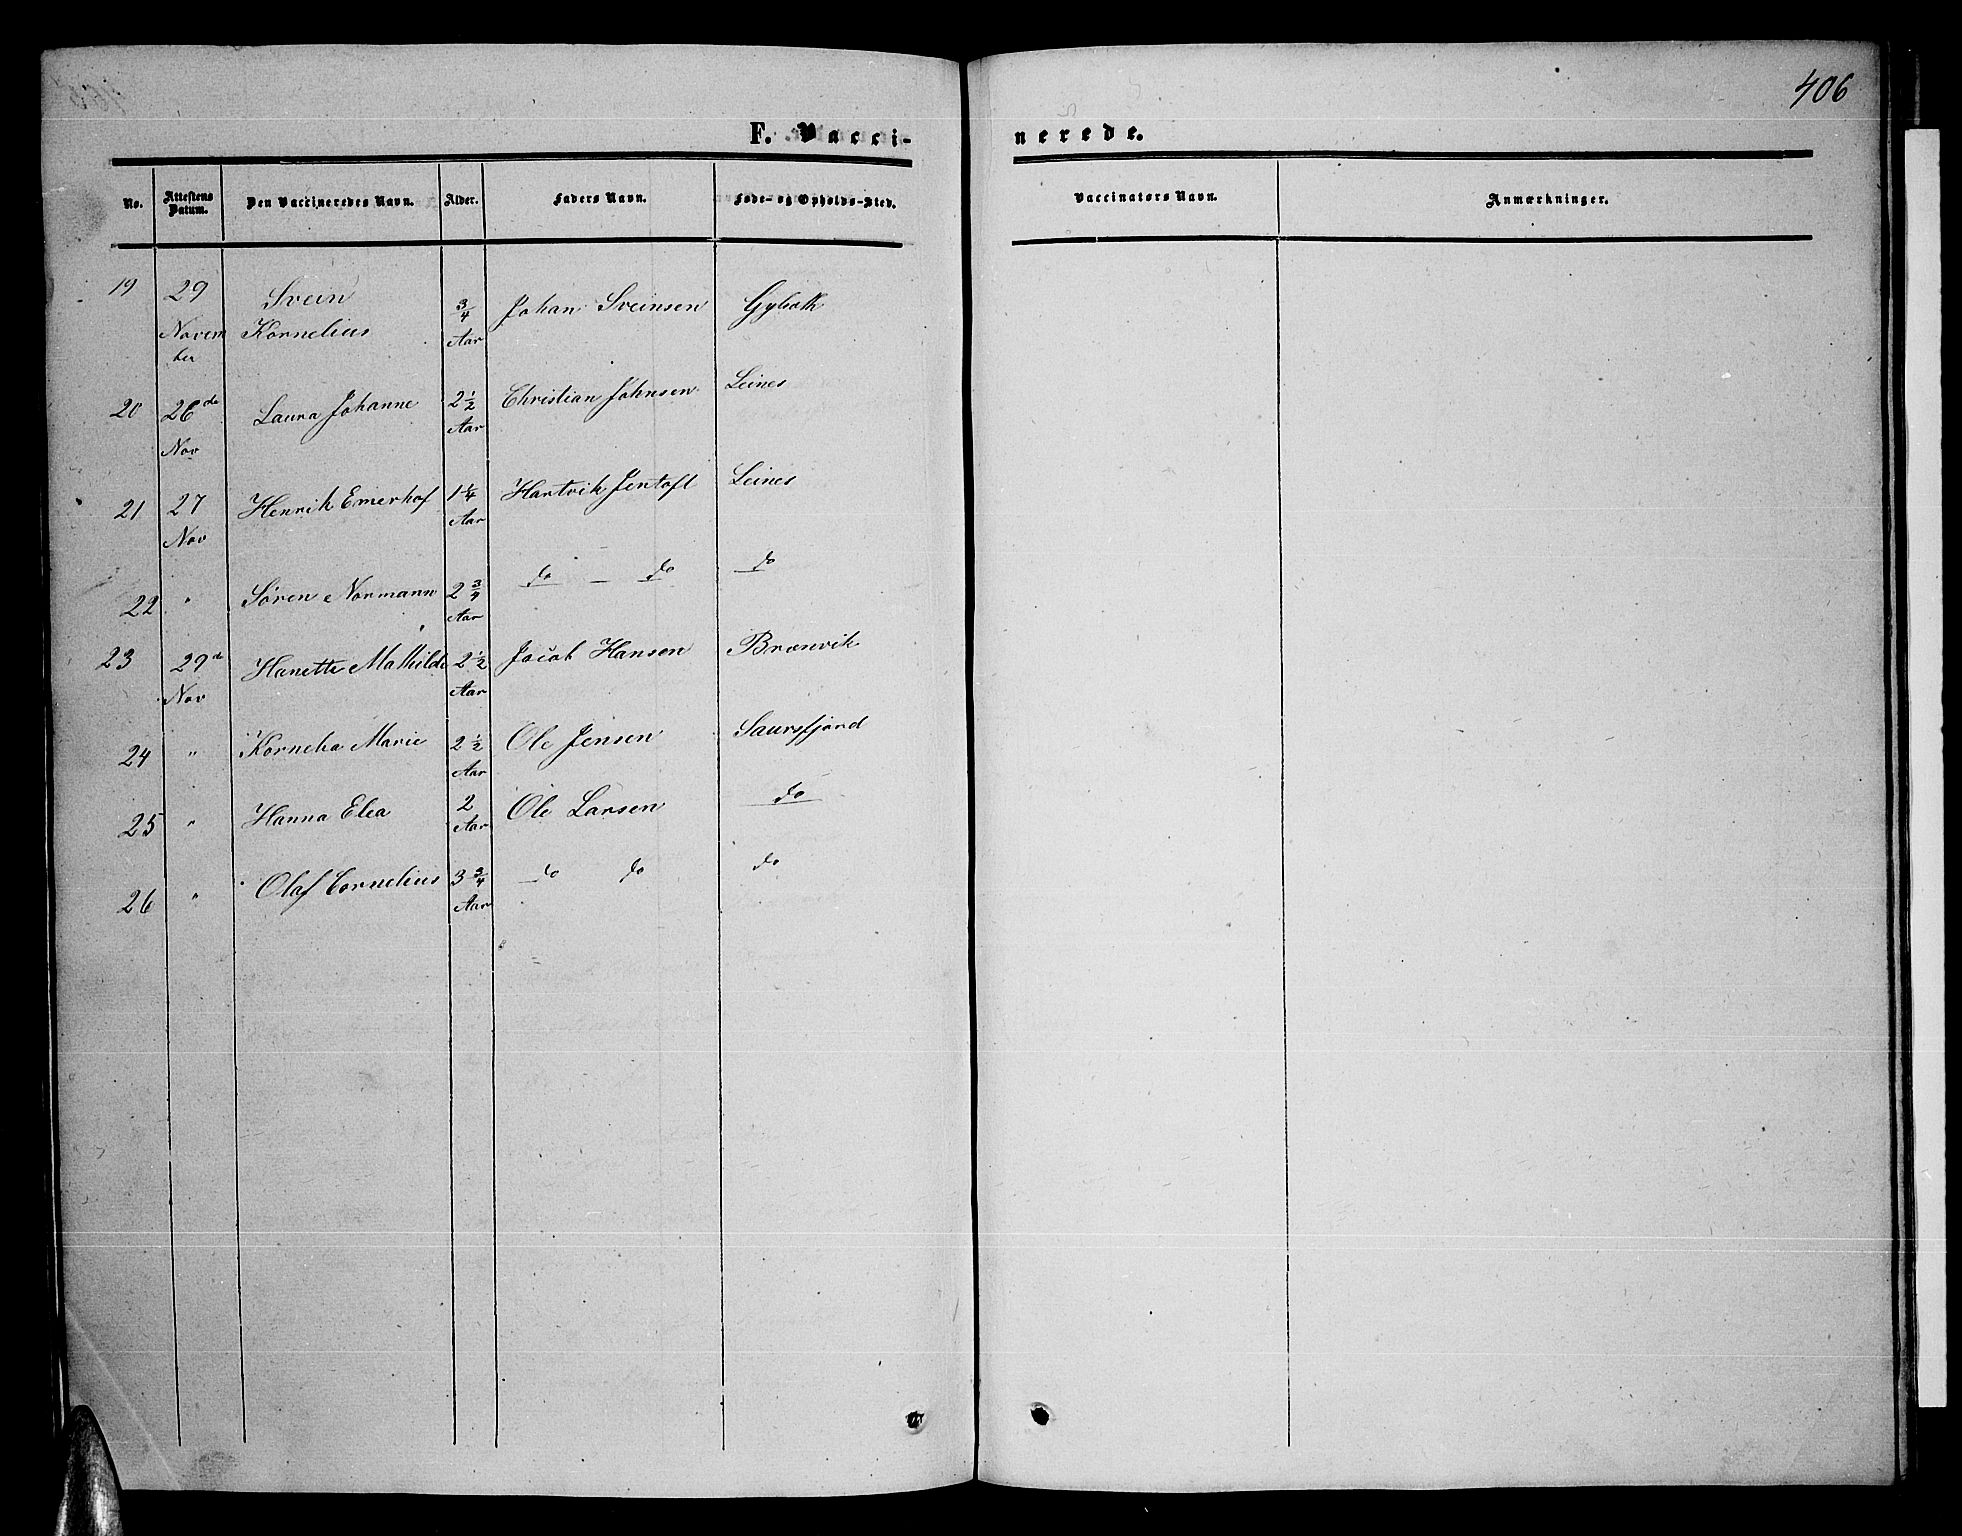 406
F. Vaccinerede.
No. Attestens Datum. Den Vaccineredes Navn. Alder. Faders Navn. Føde- og Opholds-Sted. Vaccinators Navn. Anmærkninger.
19 29 Svein 3/4 Johan Sveinsen
November Kornelius Aar
20 26de Laura Johanne 2 1/2 Christian Johnsen Leines
Nov Aar
21 27 Henrik Emerhof 1 1/4 Hartvik Jentoft Leines
Nov Aar
22 " Søren Normann 2 3/4 do — do do
Aar
23 29d Hanette Mathilde 2 1/2 Jacob Hansen Brænvik
Nov Aar
24 " Kornelia Marie 2 1/2 Ole Jensen Saursfjord
Aar
25 " Hanna Elea 2 Ole Larsen do
Aar
26 " Olaf Cornelius 3 3/4 do do do
Aar